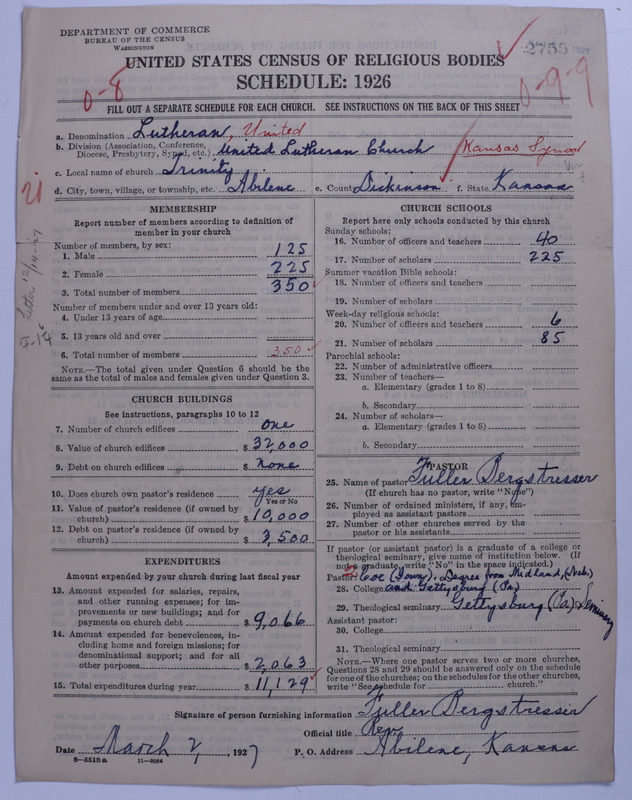 DEPARTMENT OF COMMERCE
BUREAU OF THE CENSUS
WASHINGTON
2755
UNITED STATES CENSUS OF RELIGIOUS BODIES
SCHEDULE: 1926
0-8
0-9-9
FILL OUT A SEPARATE SCHEDULE FOR EACH CHURCH. SEE INSTRUCTIONS ON THE BACK OF THIS SHEET
a. Denomination Lutheran, United
b. Division (Association, Conference, Diocese, Presbytery, Synod, etc.) United Lutheran Church Kansas Synod
c. Local name of church Trinity
d. City, town, village, or township, etc. Abilene e. County Dickinson f. State Kansas
21
Letter 12/14-27
MEMBERSHIP
Report number of members according to definition of member in your church
Number of members, by sex:
1. Male 125
2. Female 225
3. Total number of members 350
Number of members under and over 13 years old:
4. Under 13 years of age
5. 13 years old and over
6. Total number of members 350
NOTE.—The total given under Question 6 should be the same as the total of males and females given under Question 3.
CHURCH BUILDINGS
See instructions, paragraphs 10 to 12
7. Number of church edifices one
8. Value of church edifices $ 32,000
9. Debt on church edifices $ none
10. Does church own pastor's residence yes
Yes or No
11. Value of pastor's residence (if owned by church) $ 10,000
12. Debt on pastor's residence (if owned by church) $ 3,500
EXPENDITURES
Amount expended by your church during last fiscal year
13. Amount expended for salaries, repairs, and other running expenses; for improvements or new buildings; and for payments on church debt $ 9,066
14. Amount expended for benevolences, including home and foreign missions; for denominational support; and for all other purposes $ 2,063
15. Total expenditures during year $ 11,129
CHURCH SCHOOLS
Report here only schools conducted by this church
Sunday schools:
16. Number of officers and teachers 40
17. Number of scholars 225
Summer vacation Bible schools:
18. Number of officers and teachers
19. Number of scholars
Week-day religious schools:
20. Number of officers and teachers 6
21. Number of scholars 85
Parochial schools:
22. Number of administrative officers
23. Number of teachers—
a. Elementary (grades 1 to 8)
b. Secondary
24. Number of scholars—
a. Elementary (grades 1 to 8)
b. Secondary
PASTOR
25. Name of pastor Fuller Bergstresser
(If church has no pastor, write "None")
26. Number of ordained ministers, if any, employed as assistant pastors
27. Number of other churches served by the pastor or his assistants
If pastor (or assistant pastor) is a graduate of a college or theological seminary, give name of institution below. (If not a graduate, write "No" in the space indicated.)
Pastor: Coe (Iowa). Degree from Midland, (Neb.)
28. College and Gettysburg (Pa)
29. Theological seminary Gettysburg (Pa) Seminary
Assistant pastor:
30. College
31. Theological seminary
NOTE.—Where one pastor serves two or more churches, Questions 28 and 29 should be answered only on the schedule for one of the churches; on the schedules for the other churches, write "See schedule for church."
Signature of person furnishing information Fuller Bergstresser
Official title Rev.
Date March 2, 1927 P. O. Address Abilene, Kansas
8—5518a 11—9054